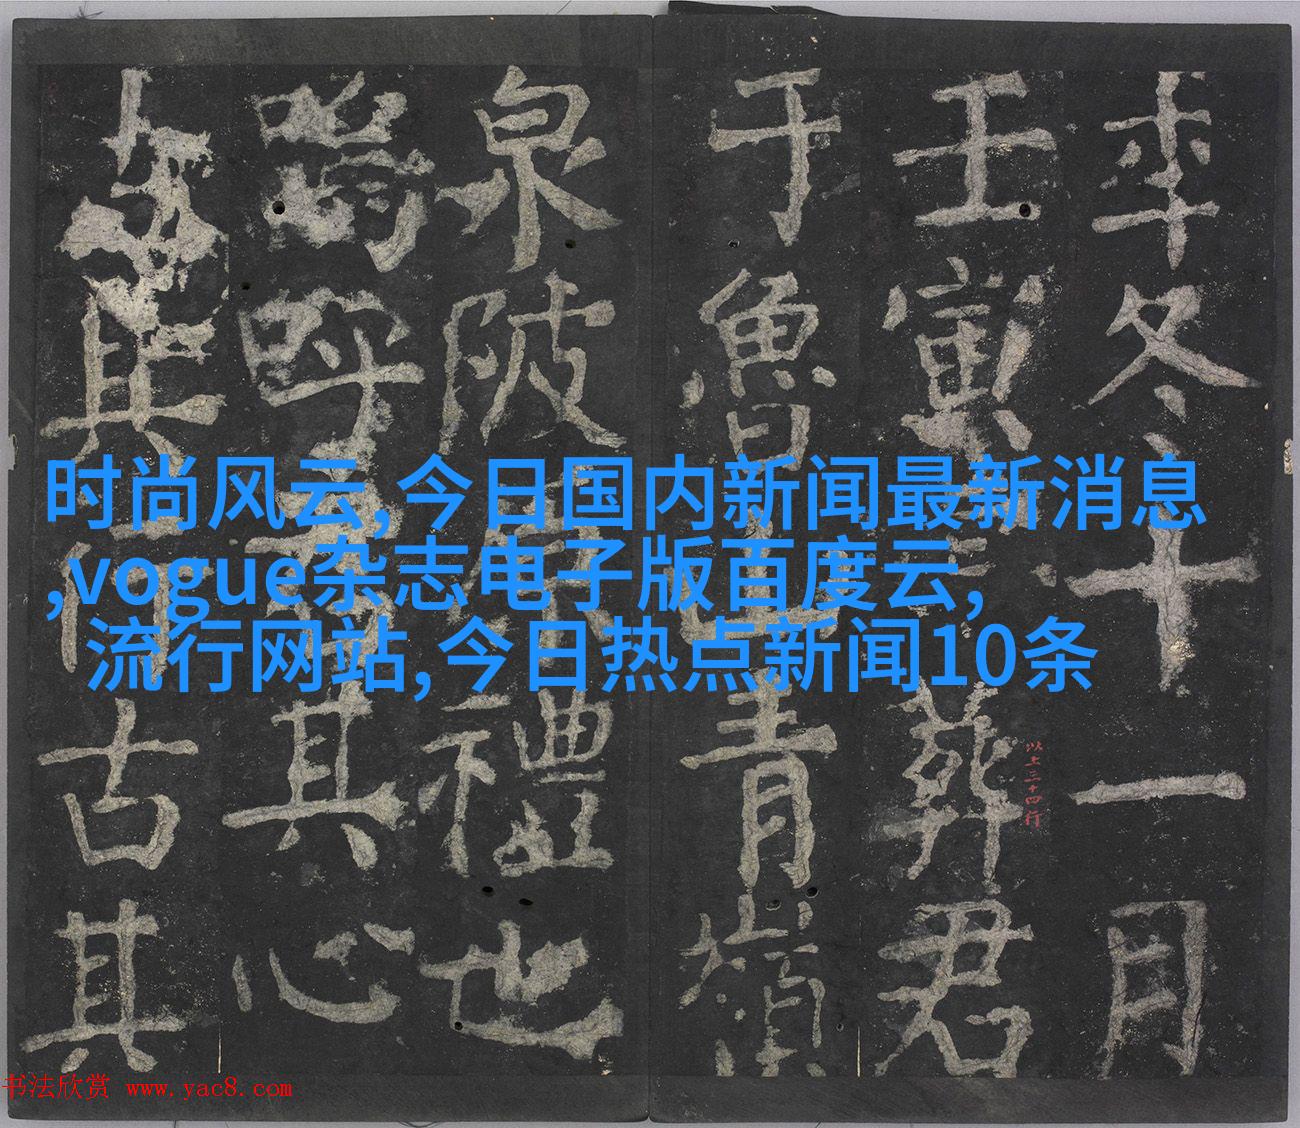 年冬十一月
壬寅
葬君
于魯
青嶺
泉陂
禮也
嗚呼
其心
其
古其
以上三十四行
时尚风云,今日国内新闻最新消息
,vogue杂志电子版百度云,
流行网站,今日热点新闻10条
书法欣赏 www.yac8.com